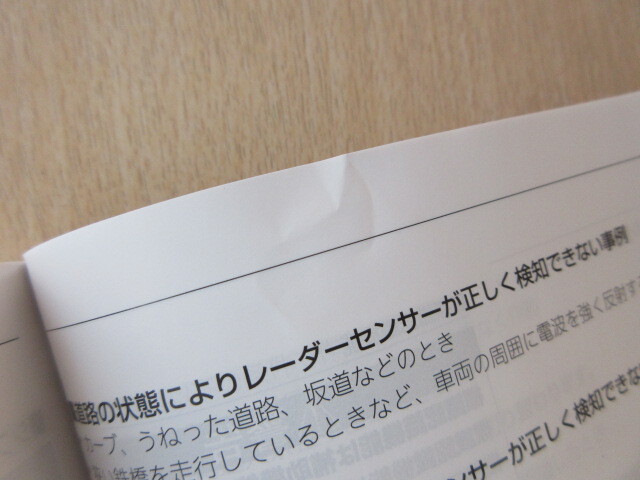 道路の状態によりレーダーセンサーが正しく検知できない事例
カーブ、うねった道路、坂道などのとき
鉄橋を走行しているときなど、車両の周囲に電波を強く反射す
ンサーが正しく検知できな